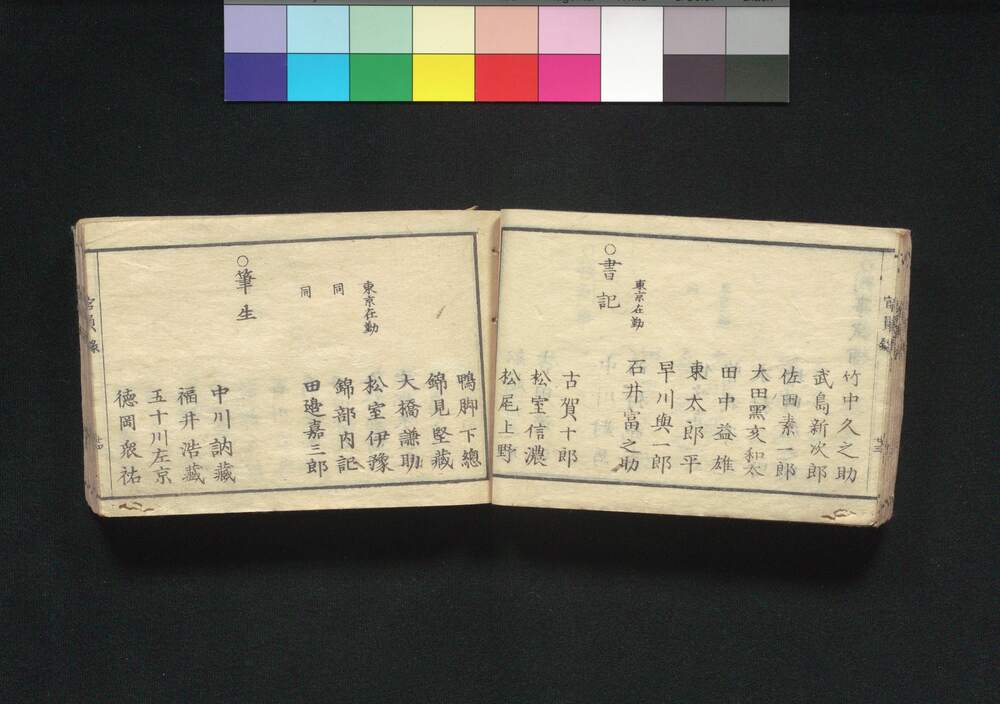 竹中久之助
武島新次郎
佐田素一郎
大田黒亥和太
田中益雄
東太郎平
早川與一郎
東京在勤
石井富之助
○書記
古賀十郎
松室信濃
松尾上野
鴨脚下總
錦見堅藏
大橋謙助
東京在勤
松室伊豫
同
錦部内記
同
田邉嘉三郎
○筆生
中川訥藏
福井浩藏
五十川左京
德岡衆祐
官員錄